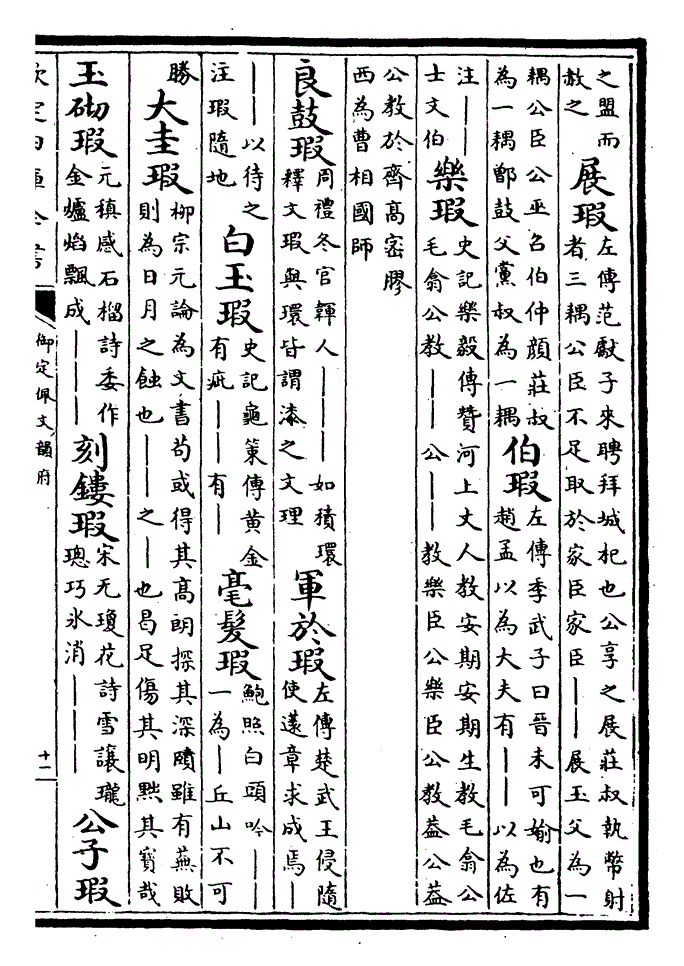 之盟而
赦之
展瑕
左傳范獻子來聘拜城杞也公享之展莊叔執幣射
者三耦公臣不足取於家臣家臣——展玉父為一
耦公臣公巫召伯仲顔莊叔
為一耦鄫鼓父黨叔為一耦
伯瑕
左傳季武子曰晉未可媮也有
趙孟以為大夫有——以為佐
注——
士文伯
樂瑕
史記樂毅傳贊河上丈人教安期安期生教毛翕公
毛翕公教——公——教樂臣公樂臣公教葢公葢
公教於齊髙宻膠
西為曹相國師
良鼓瑕
周禮冬官韗人———如積環
釋文瑕與環皆謂漆之文理
軍於瑕
左傳楚武王侵隨
使薳章求成焉—
——以待之
注瑕隨地
白玉瑕
史記龜策傳黄金
有疵——有—
毫髮瑕
鮑照白頭吟——
一為—丘山不可
勝
大圭瑕
柳宗元論為文書苟或得其髙朗探其深賾雖有蕪敗
則為日月之蝕也——之—也曷足傷其明黜其寳哉
玉砌瑕
元稹感石榴詩委作
金爐焰飄成———
刻鏤瑕
宋无瓊花詩雪讓瓏
璁巧氷消———
公子瑕
欽定四庫全書
御定佩文韻府
十一